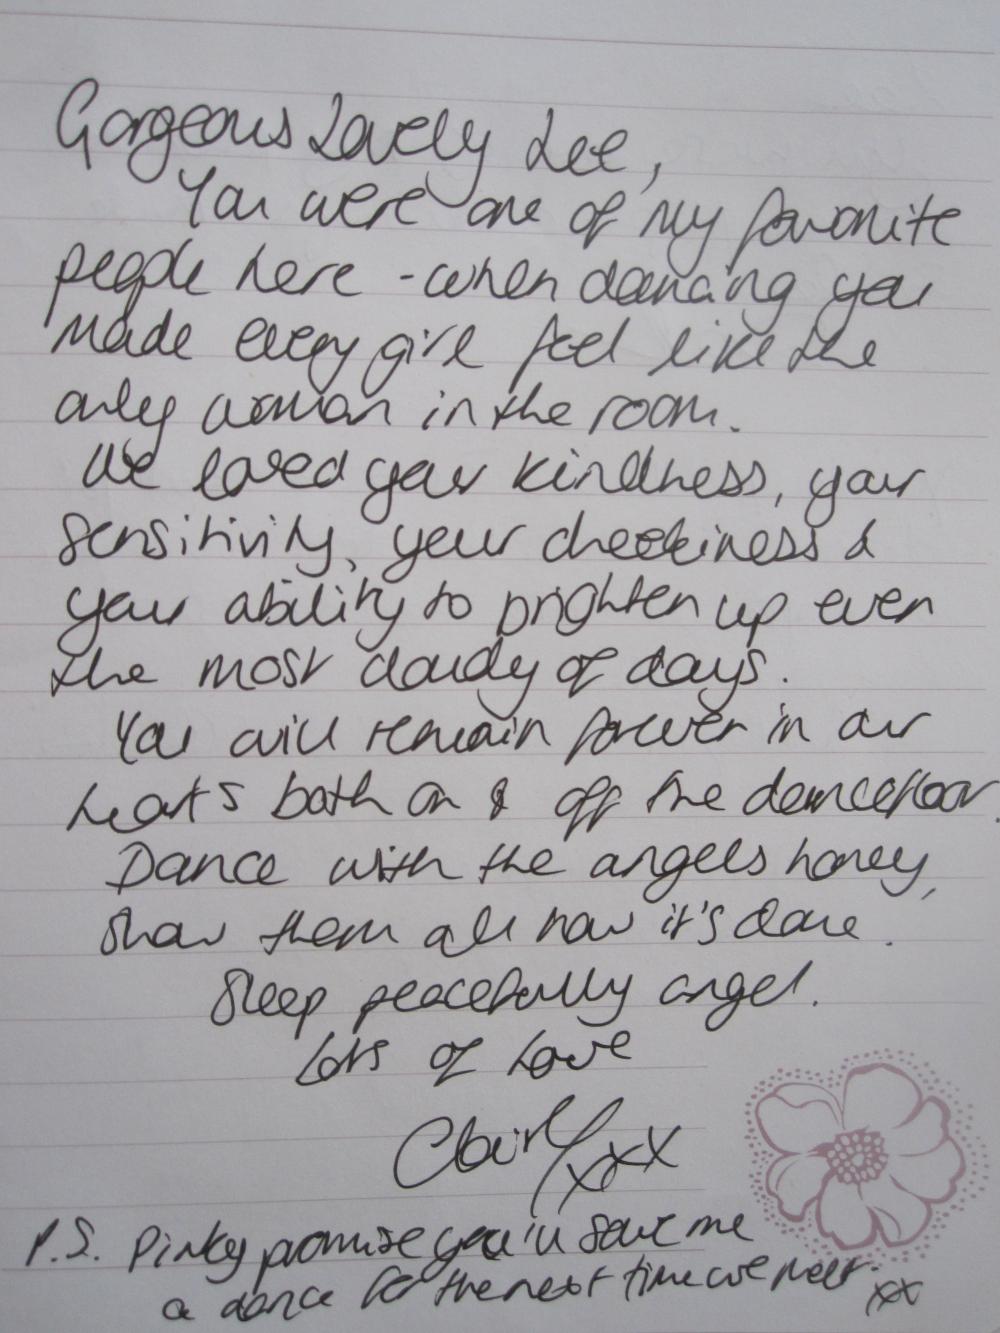 Gorgeous Lovely Lee,
You were one of my favorite
people here - when dancing you
made every girl feel like the
only woman in the room.
We loved your kindness, your
sensitivity, your cheekiness &
your ability to brighten up even
the most cloudy of days.
You will remain forever in our
hearts both on & off the dancefloor.
Dance with the angels honey,
show them all how it's done.
Sleep peacefully angel.
Lots of Love
Claire xxx
P.S. Pinky promise you'll save me
a dance for the next time we meet. xx